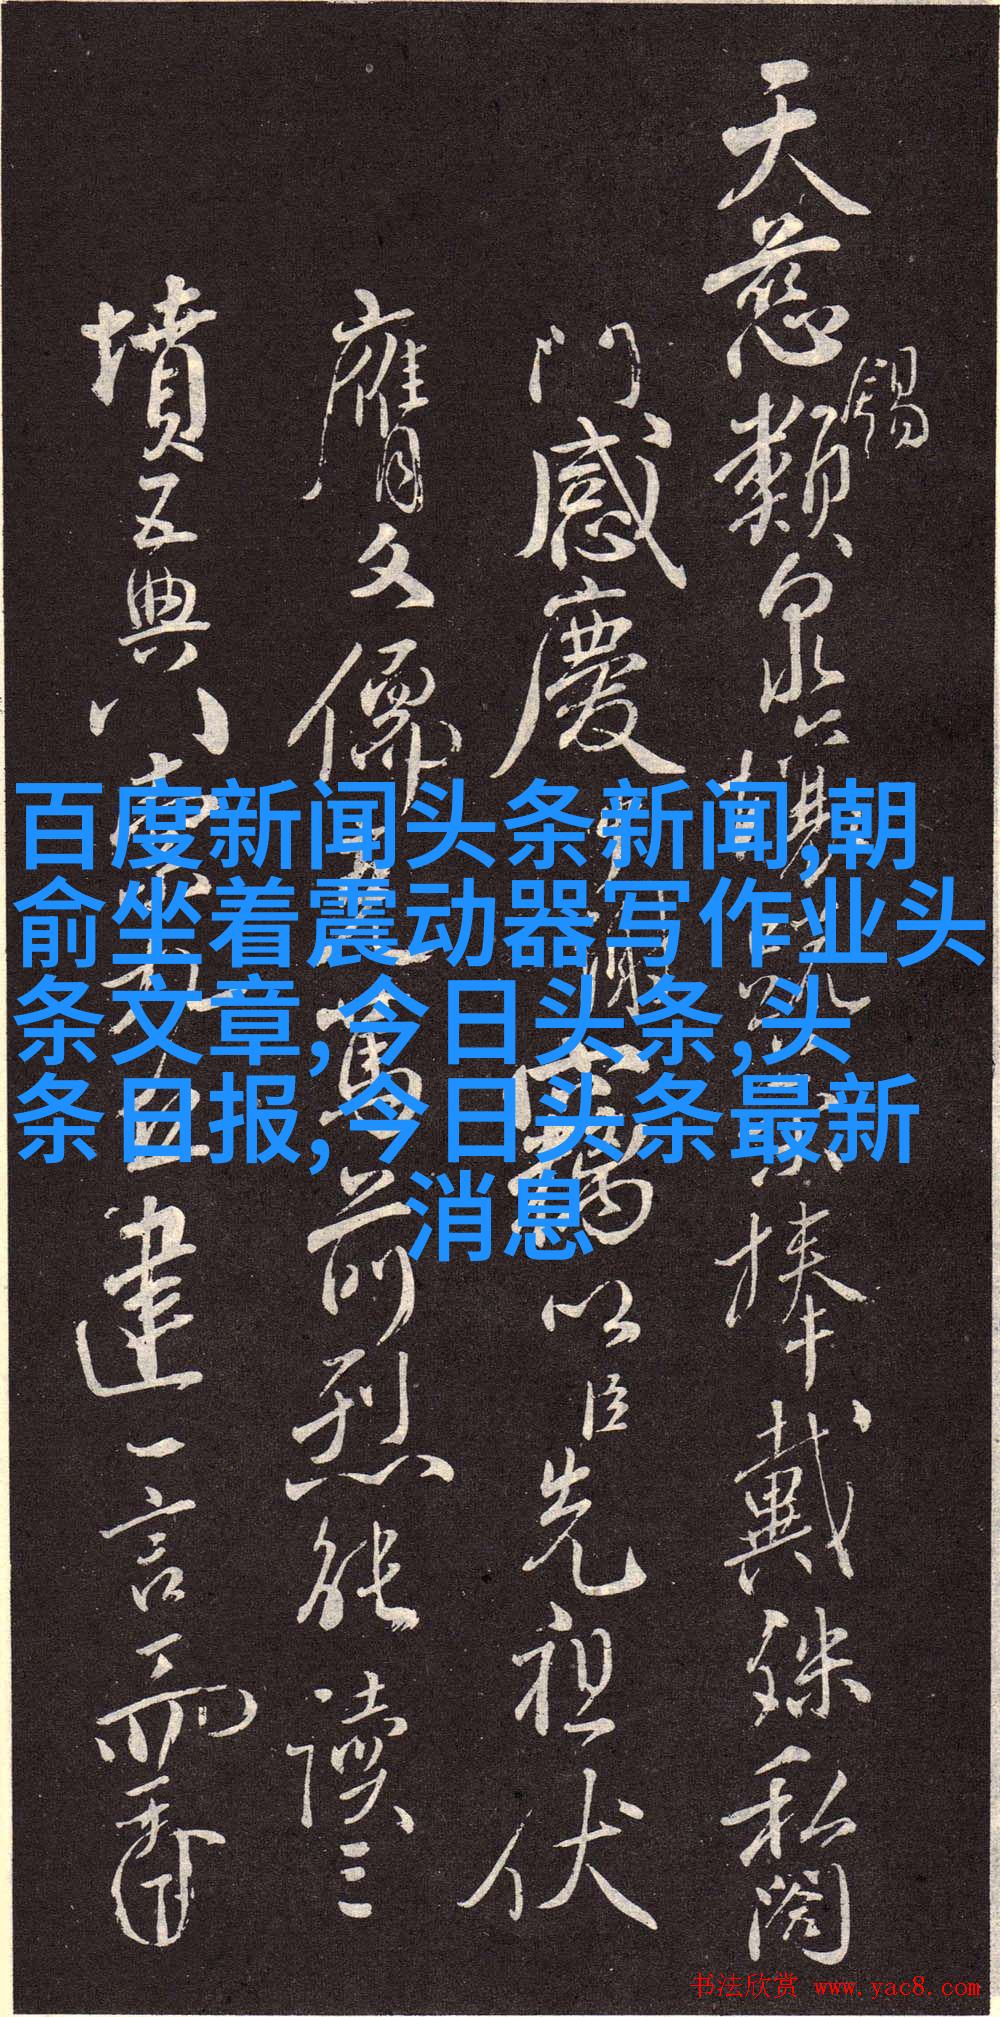 天慈錫類泉
捧戴殊私闔
門感慶
以臣先祖伏
膺文儒
舊前烈能讀三
墳五典八
建一言
百度新闻头条新闻,朝
俞坐着震动器写作业头
条文章,今日头条,头
条日报,今日头条最新
消息
书法欣赏 www.yac8.com